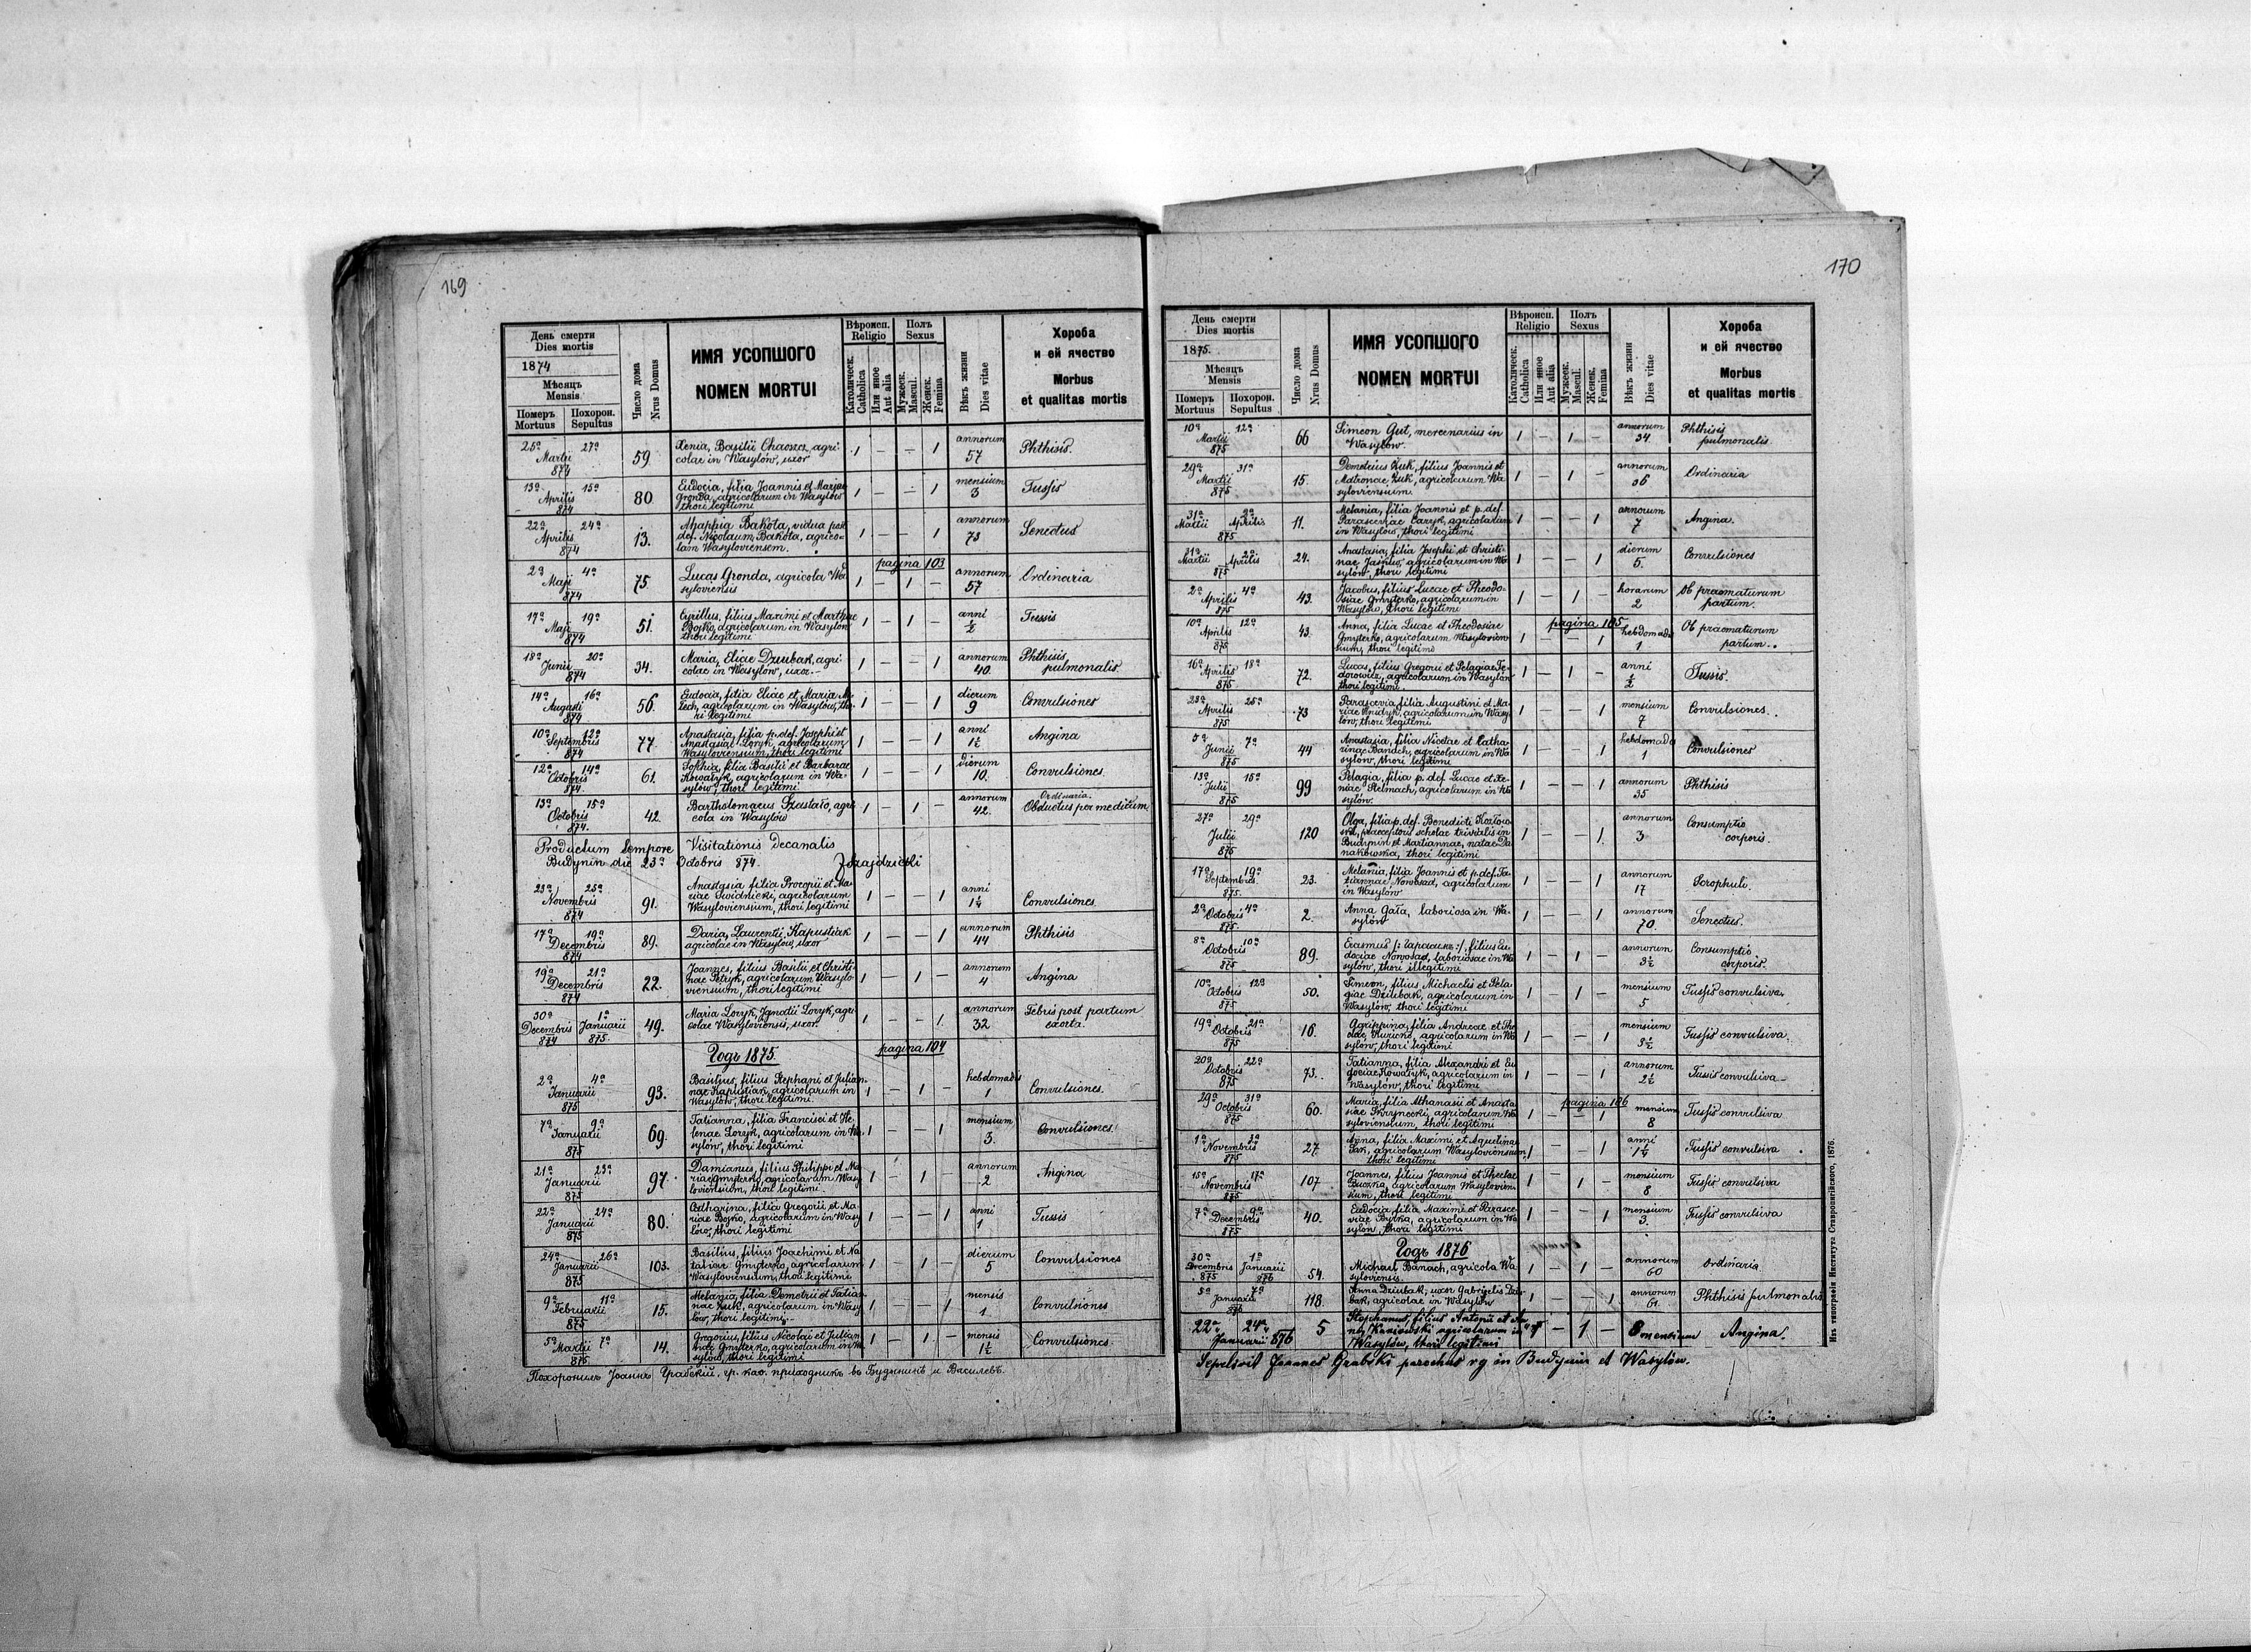 169
День смерти
Dies mortis
1874
Мѣсяць
Mensis
Померъ
Mortuus
Похорон.
Sepultus
Число дома
Nrus Domus
ИМЯ УСОПШОГО
NOMEN MORTUI
Вѣроисп.
Religio
Католическ.
Catholica
Или иное
Aut alia
Полъ
Sexus
Мужеск.
Mascul.
Женск.
Femina
Вѣкъ жизни
Dies vitae
Хороба
и ей ячество
Morbus
et qualitas mortis
25ª 27ª Martii 874 59 Xenia, Basilii agri-
colae in Wasylów, uxor 1 — — 1 annorum 57 Phthisis.
13ª 15ª Aprilis 874 80 Eudocia, filia Joannis et Mariae
Gronda, agricolarum in Wasylów
thori legitimi 1 — — 1 mensium 3 Tussis
22ª 24ª Aprilis 874 13. Bakota, vidua post
def. Nicolaum Bakota, agrico-
lam Wasyloviensem. 1 — — 1 annorum 73 Senectus
pagina 103
2ª 4ª Maji 874 75 Lucas Gronda, agricola Wa-
syloviensis 1 — 1 — annorum 57 Ordinaria
17ª 19ª Maji 874 51. Cyrillus, filius Maximi et Marthae
Bojko, agricolarum in Wasylów
thori legitimi 1 — 1 — anni ½ Tussis
18ª 20ª Junii 874 34. Maria, Eliae Dziubak, agri-
colae in Wasylów, uxor. 1 — — 1 annorum 40. Phthisis
pulmonalis
14ª 16ª Augusti 874 56. Eudocia, filia Eliae et Maria
agricolarum in Wasylów, tho-
ri legitimi 1 — — 1 dierum 9 Convulsiones
10ª 12ª Septembris 874 77. Anastasia, filia p. def. Josephi et
Anastasiae Loryk, agricolarum
Wasyloviensium, thori legitimi 1 — — 1 anni 1½ Angina
12ª 14ª Octobris 874 61. Sophia, filia Basilii et Barbarae
Kowalyk, agricolarum in Wa-
sylów, thori legitimi 1 — — 1 dierum 10. Convulsiones.
13ª 15ª Octobris 874. 42. Bartholomaeus Szustało, agri-
cola in Wasylów 1 — 1 — annorum 42. Ordinaria.
Obductus per medicum
Productum tempore Visitationis Decanalis
Budynin die 23ª Octobris 874.
23ª 25ª Novembris 874 91. Anastasia filia Procopii et Ma-
riae Swidnicki, agricolarum
Wasyloviensium, thori legitimi 1 — — 1 anni 1¼ Convulsiones.
17ª 19ª Decembris 874 89. Daria, Laurentii Kapustiak
agricolae in Wasylow, uxor 1 — — 1 annorum 44 Phthisis
19ª 21ª Decembris 874 22. Joannes, filius Basilii et Christi-
nae Petryk, agricolarum Wasylo-
viensium, thori legitimi 1 — 1 — annorum 4 Angina
30ª Decembris 874 1ª Januarii 875. 49. Maria Loryk, Ignatii Loryk, agri-
colae Wasyloviensis, uxor. 1 — — 1 annorum 32 Febris post partum
exorta.
Годъ 1875. pagina 104
2ª 4ª Januarii 875 93. Basilius, filius Stephani et Julian-
nae Kapustiak, agricolarum in
Wasylów, thori legitimi. 1 — 1 — hebdomadis 1 Convulsiones.
7ª 9ª Januarii 875 69. Tatianna, filia Francisci et He-
lenae Loryk, agricolarum in Wa-
sylów, thori legitimi 1 — — 1 mensium 3. Convulsiones.
21ª 23ª Januarii 875 97. Damianus, filius Philippi et Ma-
riae Gmyterko, agricolarum Wasy-
loviensium, thori legitimi. 1 — 1 — annorum 2 Angina
22ª 24ª Januarii 875 80. Catharina, filia Gregorii et Ma-
riae Bojko, agricolarum in Wasy-
lów, thori legitimi 1 — — 1 anni 1 Tussis
24ª 26ª Januarii 875 103. Basilius, filius Joachimi et
Gmyterko, agricolarum
Wasyloviensium, thori legitimi 1 — 1 — dierum 5 Convulsiones
9ª 11ª Februarii 875 15. Melania, filia Demetrii et Tatian-
nae Żuk, agricolarum in Wasy-
lów, thori legitimi. 1 — — 1 mensis 1. Convulsiones
5ª 7ª Martii 875 14. Gregorius, filius Nicolai et Julian-
nae Gmyterko, agricolarum in Wa-
sylów, thori legitimi 1 — 1 — mensis 1½ Convulsiones.
Похоронилъ Іоаннъ Грабскій, гр. кат. приходникъ въ Будынинѣ и Василевѣ.
170
День смерти
Dies mortis
1875.
Мѣсяць
Mensis
Померъ
Mortuus
Похорон.
Sepultus
Число дома
Nrus Domus
ИМЯ УСОПШОГО
NOMEN MORTUI
Вѣроисп.
Religio
Католическ.
Catholica
Или иное
Aut alia
Полъ
Sexus
Мужеск.
Mascul.
Женск.
Femina
Вѣкъ жизни
Dies vitae
Хороба
и ей ячество
Morbus
et qualitas mortis
10ª 12ª Martii 875 66 Simeon Gut, mercenarius in
Wasylów. 1 — 1 — annorum 34 Phthisis
pulmonalis.
29ª 31ª Martii 875 15. Demetrius Żuk, filius Joannis et
Matronae Żuk, agricolarum Wa-
syloviensium. 1 — 1 — annorum 36 Ordinaria
31ª Martii 2ª Aprilis 875 11. Melania, filia Joannis et p. def.
Parasceviae Caryk, agricolarum
in Wasylów, thori legitimi 1 — — 1 annorum 7 Angina.
31ª Martii 2ª Aprilis 875 24. Anastasia, filia Josephi et Christi-
nae Jasilio, agricolarum in Wa-
sylów, thori legitimi 1 — — 1 dierum 5. Convulsiones
2ª 4ª Aprilis 875 43. Jacobus, filius Lucae et Theodo-
siae Gmyterko, agricolarum in
Wasylów, thori legitimi 1 — 1 — horarum 2 Ob praematurum
partum.
pagina 105
10ª 12ª Aprilis 875 43. Anna, filia Lucae et Theodosiae
Gmyterko, agricolarum Wasylovien-
sium, thori legitimi 1 — — 1 hebdomadis 1 Ob praematurum
partum.
16ª 18ª Aprilis 875 72. Lucas, filius Gregorii et Pelagiae Fe-
dorowicz, agricolarum in Wasylów
thori legitimi. 1 — 1 — anni ½ Tussis.
23ª 25ª Aprilis 875 73 Parascevia, filia Augustini et Ma-
riae Hnidyk, agricolarum in Wasy-
lów, thori legitimi 1 — — 1 mensium 7 Convulsiones.
5ª 7ª Junii 875 44 Anastasia, filia Nicetae et Catha-
rinae Banach, agricolarum in Wa-
sylów, thori legitimi 1 — — 1 hebdomadis 1 Convulsiones
13ª 15ª Julii 875 99 Pelagia, filia p. def. Lucae et Xe-
niae Stelmach, agricolarum in Wa-
sylów. 1 — — 1 annorum 35 Phthisis
27ª 29ª Julii 875 120 Olga, filia p. def. Benedicti Kozłow-
ski, praeceptoris scholae trivialis in
Budynin et Mariannae, natae Da-
nakowska, thori legitimi 1 — — 1 annorum 3 Consumptio
corporis.
17ª 19ª Septembris 875. 23. Melania, filia Joannis et p. def. Ta-
tiannae Nowosad, agricolarum
in Wasylów 1 — — 1 annorum 17 Scrophuli.
2ª 4ª Octobris 875. 2. Anna Gała, laboriosa in Wa-
sylów 1 — — 1 annorum 70. Senectus.
8ª 10ª Octobris 875 89. Erasmus, filius Eu-
dociae Nowosad, laboriosae in Wa-
sylów, thori illegitimi 1 — 1 — annorum 3½ Consumptio
corporis.
10ª 12ª Octobris 875 50. Simeon, filius Michaelis et Pela-
giae Dziubak, agricolarum in
Wasylów, thori legitimi 1 — 1 — mensium 5 Tussis convulsiva.
19ª 21ª Octobris 875 16. Agrippina, filia Andreae et The-
clae Kuricko, agricolarum in Wa-
sylów, thori legitimi 1 — — 1 mensium 3½ Tussis convulsiva.
20ª 22ª Octobris 875 73. Tatianna, filia Alexandri et Eu-
dociae Kowalyk, agricolarum in
Wasylów, thori legitimi 1 — — 1 annorum 2½ Tussis convulsiva
pagina 106
29ª 31ª Octobris 875 60. Maria, filia Athanasii et Anasta-
siae Skrynecki, agricolarum Wa-
syloviensium, thori legitimi 1 — — 1 mensium 8 Tussis convulsiva
1ª Novembris 875 27. Anna, filia Maximi et Aquelina
Pań, agricolarum Wasyloviensium,
thori legitimi 1 — — 1 anni 1¼ Tussis convulsiva
15ª 17ª Novembris 875 107. Joannes, filius Joannis et Theclae
Buczna, agricolarum Wasylovien-
sium, thori legitimi 1 1 — mensium 8 Tussis convulsiva
7ª 9ª Decembris 875 40. Eudocia, filia Maximi et Parasce-
viae Byrka, agricolarum in Wa-
sylów, thori legitimi 1 — — 1 mensium 3. Tussis convulsiva
Годъ 1876
30ª Decembris 875 1ª Januarii 876 54. Michael Banach, agricola Wa-
syloviensis. 1 — 1 — annorum 60 Ordinaria.
5ª 7ª Januarii 876 118. Anna Dziubak, uxor Gabrielis Dziu-
bak, agricolae in Wasylów 1 — — 1 annorum 61. Phthisis pulmonalis
22ª 24ª Januarii 876 5 Stephanus, filius Antonii et An-
nae agricolarum in
Wasylów, thori legitimi 1 — 1 — 8 mensium Angina.
Sepelivit Joannes Grabski parochus r g in Budynin et Wasylów.
Изъ типографіи Института Ставропигійского, 1876.